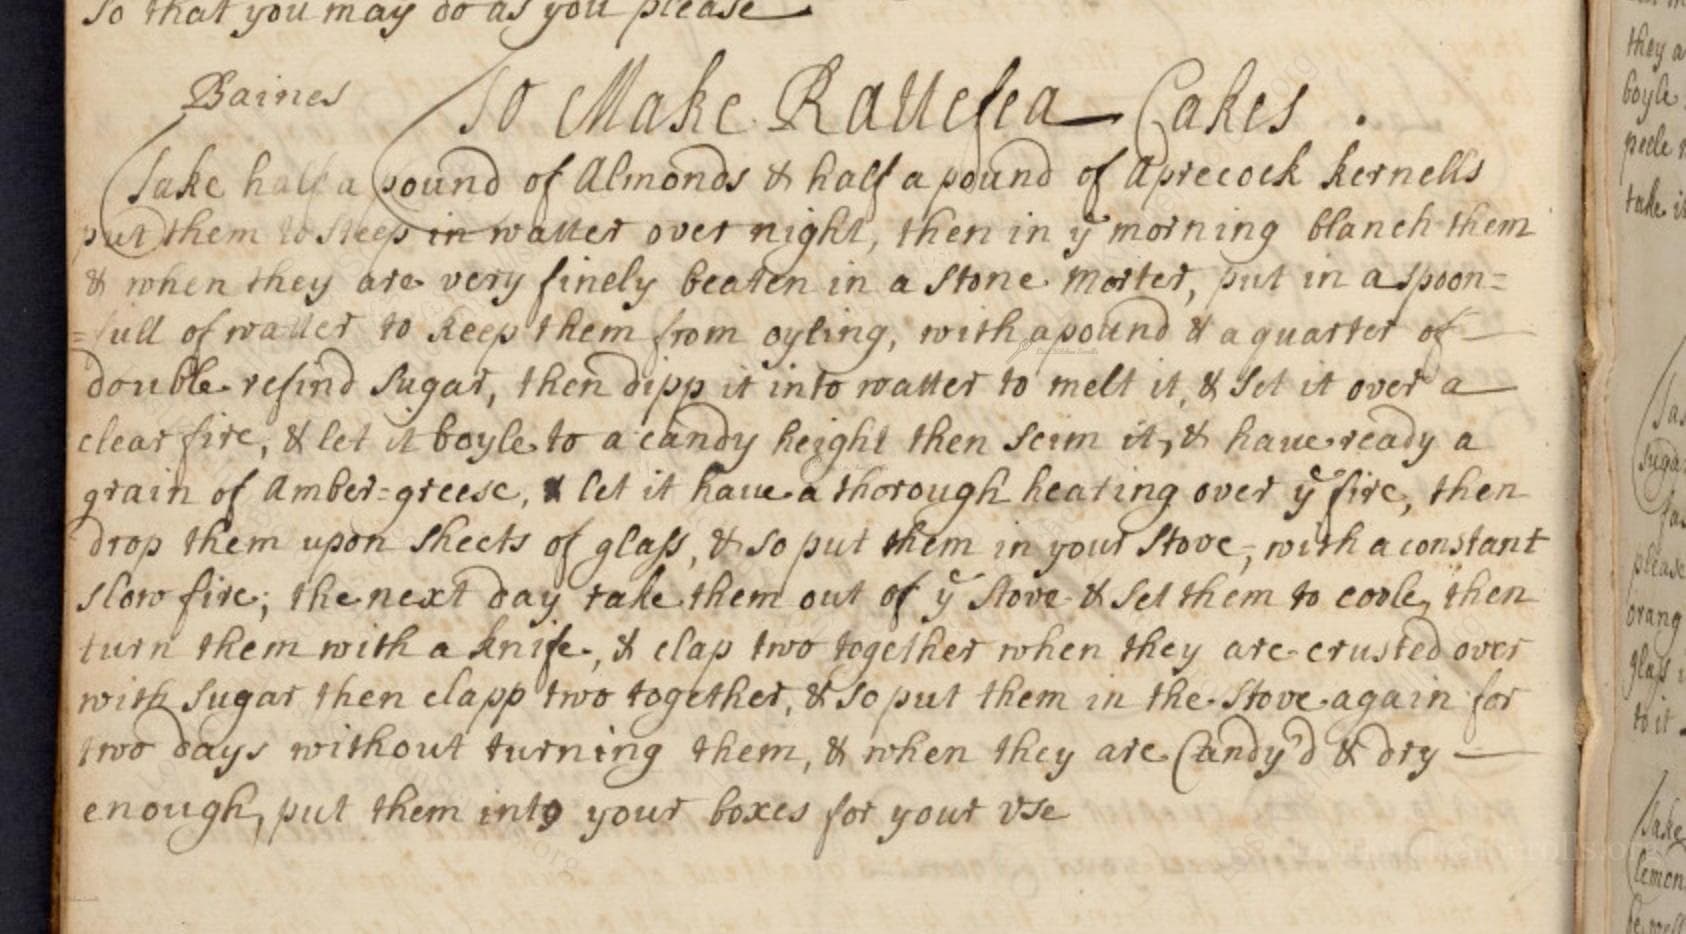 so that you may do as you please
Baines
To Make Rattefea Cakes .
Take half a pound of Almonds & half a pound of Aprecock kernells
put them to steep in watter over night, then in yͤ morning blanch them
& when they are very finely beaten in a stone morter, put in a spoon=
=full of watter to keep them from oyling, with a pound & a quarter of
double refind sugar, then dipp it into watter to melt it, & set it over a
clear fire, & let it boyle to a candy height then scim it, & haue ready a
grain of Amber=greese, & let it haue a thorough heating over yͤ fire, then
drop them upon sheets of glass, & so put them in your stove, with a constant
slow fire; the next day take them out of yͤ stove & set them to coole, then
turn them with a knife, & clap two together when they are crusted over
with sugar then clapp two together, & so put them in the stove again for
two days without turning them, & when they are Candy'd & dry
enough, put them into your boxes for your vse
they a
boyle
peele
take it
sugar
please
orang
glass
to it
Take
lemon